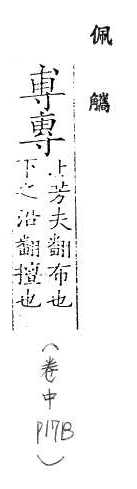 佩觿
尃專
上芳夫翻布也
下之沿翻擅也
（卷中
P17B）